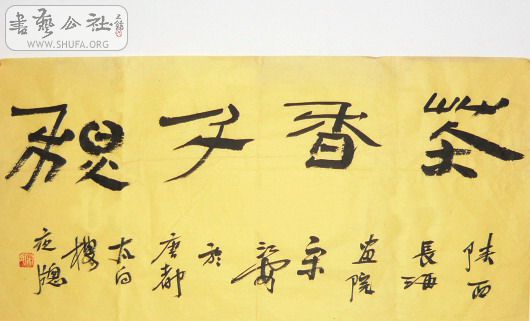 書藝公社
WWW.SHUFA.ORG
茶香千
陕西
長海
画院
宗
於
唐都
太白
樓